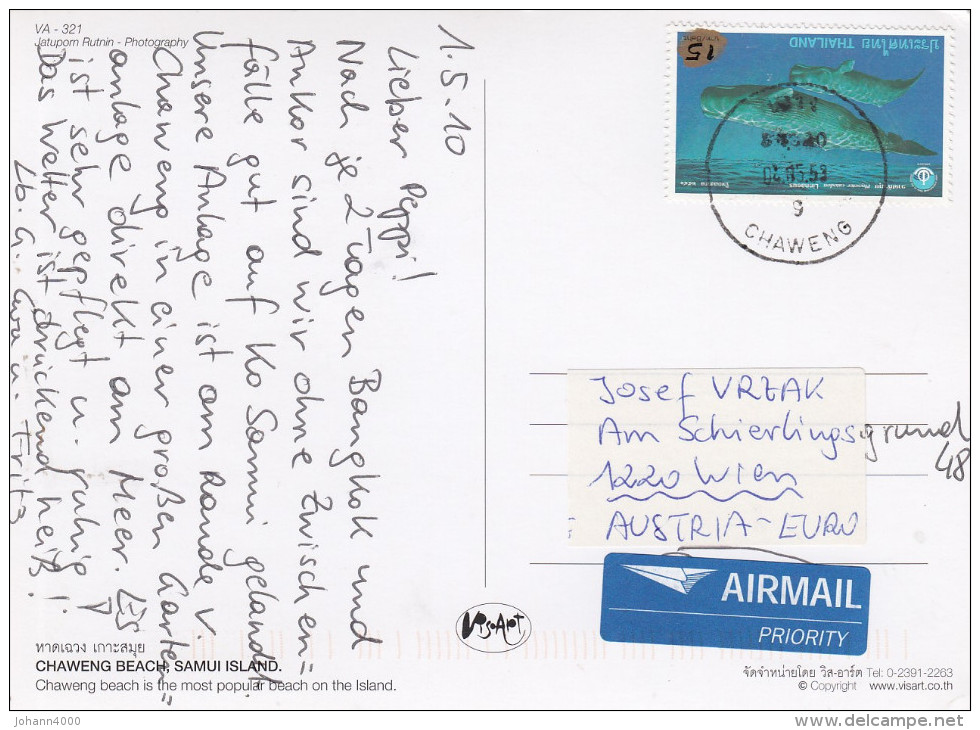 VA - 321
Jatuporn Rutnin - Photography
1.5.10
Lieber Peppi!
Nach je 2 Tagen Bangkok und
Ankor sind wir ohne Zwischen=
fälle gut auf Ko Samui gelandet.
Unsere Anlage ist am Rande v.
Chaweng in einer großen Garten=
anlage direkt am Meer. Es
ist sehr gepflegt u. ruhig!
Das Wetter ist drückend heiß!
Lb. G. u. Fritz
ประเทศไทย THAILAND
15
9
CHAWENG
Josef VRZAK
Am Schierlingsgrund
48
1220 Wien
AUSTRIA - EURO
AIRMAIL
PRIORITY
VisArt
หาดเฉวง เกาะสมุย
CHAWENG BEACH, SAMUI ISLAND.
Chaweng beach is the most popular beach on the Island.
จัดจำหน่ายโดย วิส-อาร์ต Tel: 0-2391-2263
© Copyright www.visart.co.th
Johann4000